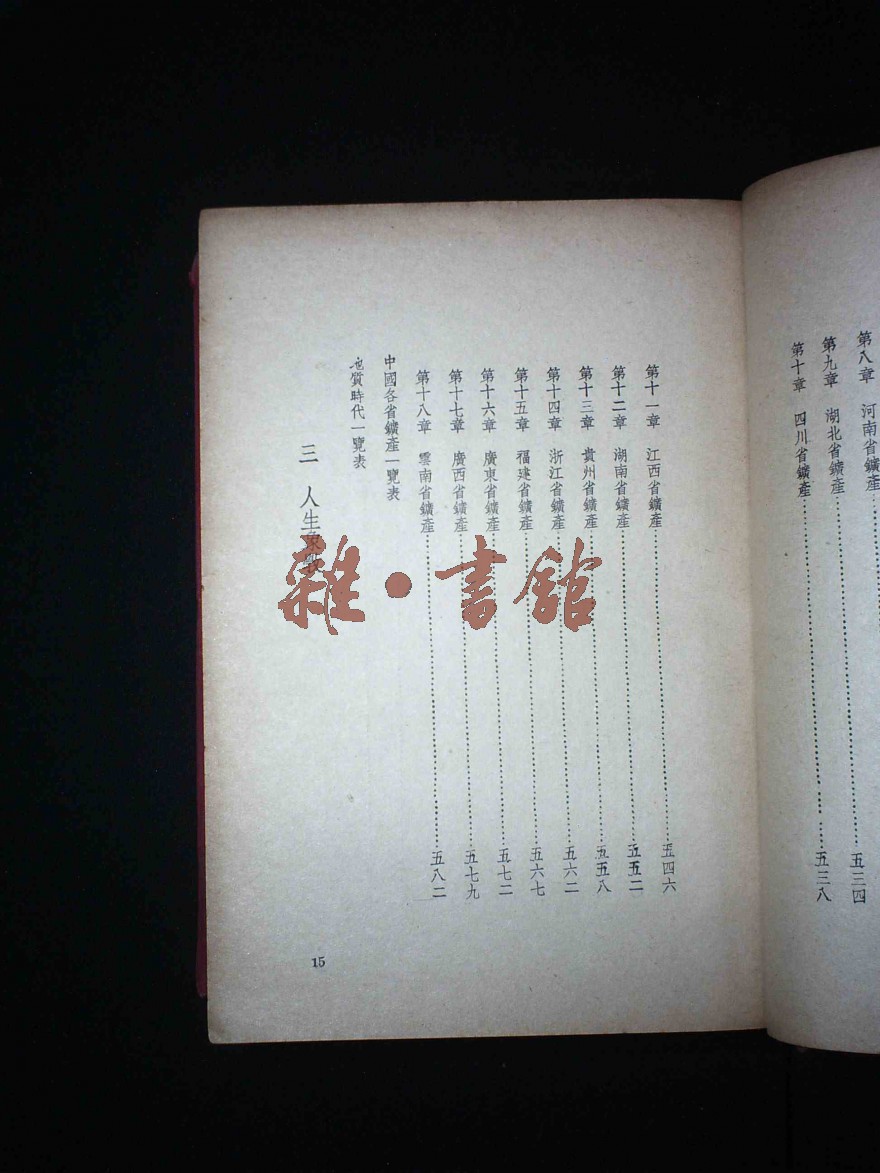 第八章 河南省鑛產……五三四
第九章 湖北省鑛產……五三八
第十章 四川省鑛產
第十一章 江西省鑛產……五四六
第十二章 湖南省鑛產……五五二
第十三章 貴州省鑛產……五五八
第十四章 浙江省鑛產……五六二
第十五章 福建省鑛產……五六七
第十六章 廣東省鑛產……五七二
第十七章 廣西省鑛產……五七九
第十八章 雲南省鑛產……五八二
中國各省鑛產一覽表
地質時代一覽表
三 人生象數
15
雜·書館